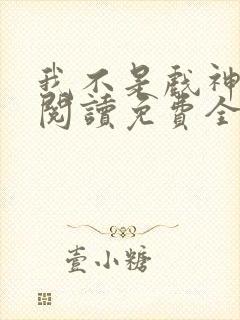 我不是戲神
閱讀免費全
壹小糖